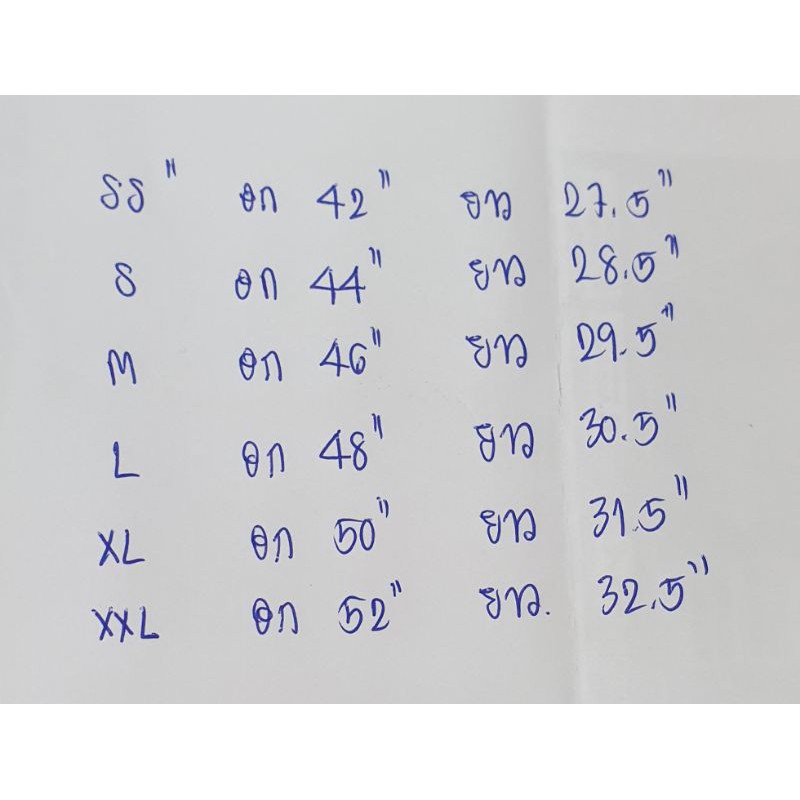 SS" อก 42" ยาว 27.5"
S อก 44" ยาว 28.5"
M อก 46" ยาว 29.5"
L อก 48" ยาว 30.5"
XL อก 50" ยาว 31.5"
XXL อก 52" ยาว. 32.5"